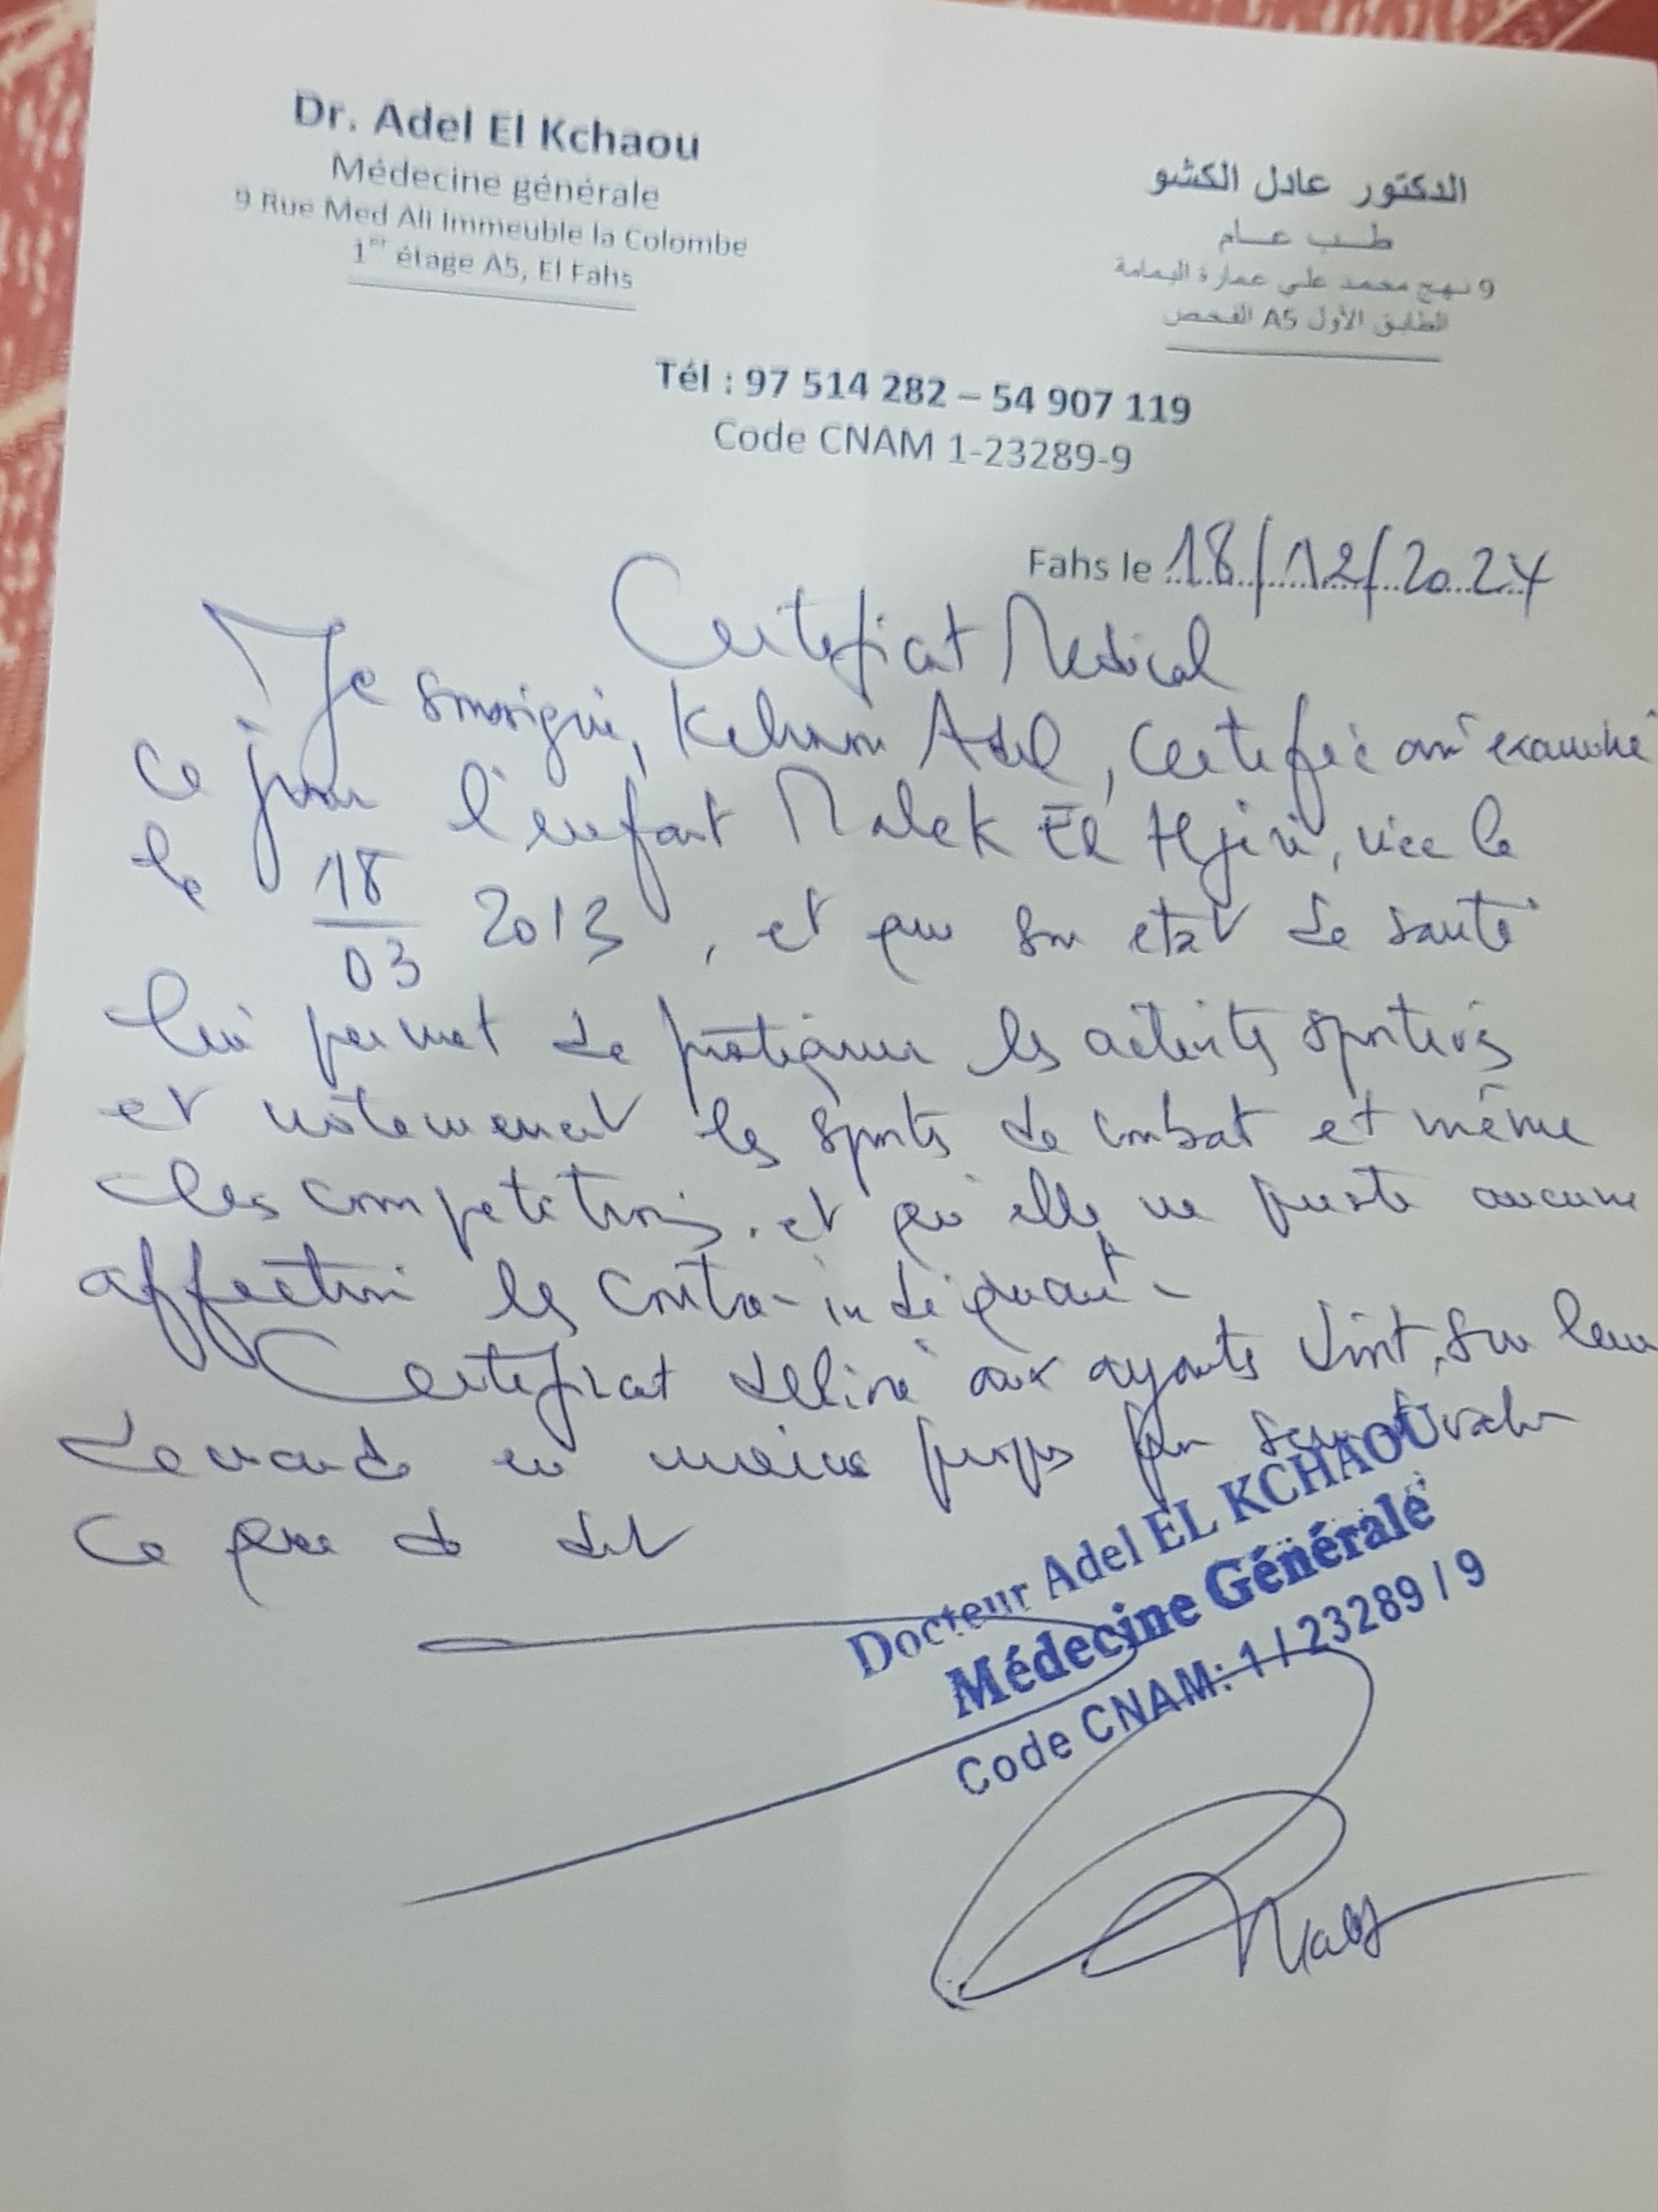 Dr. Adel El Kchaou
Médecine générale
9 Rue Med Ali Immeuble la Colombe
1er étage A5, El Fahs
الدكتور عادل الكشو
طب عام
9 نهج محمد علي عمارة اليمامة
الطابق الأول A5 الفحص
Tél : 97 514 282 – 54 907 119
Code CNAM 1-23289-9
Fahs le 18/12/2024
Certificat Medical
Je soussigné, Kchaou Adel, certifie avoir examiné
ce jour l'enfant Malek El Hjiri, née le
le 18/03 2013, et que son etat de santé
lui permet de pratiquer les activités sportives
et notamment les sports de combat et même
les competitions. et qu'elle ne presente aucune
affection les contre-indiquant.
Certificat délivré aux ayants droit, sur leur
demande en mains propres pour servir et valoir
ce que de dit
Docteur Adel EL KCHAOU
Médecine Générale
Code CNAM: 1 / 23289 / 9